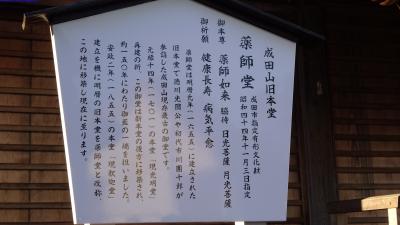 成田山旧本堂
薬師堂
成田市指定有形文化財
昭和四十四年十一月三日指定
御本尊 薬師如来 脇侍 日光菩薩 月光菩薩
御祈願 健康長寿 病気平癒
薬師堂は明暦元年(一六五五)に建立された
旧本堂で徳川光圀公や初代市川團十郎が
参詣した成田山現存最古の御堂です。
元禄十四年(一七〇一)の本堂「現光明堂」
再建の折、この御堂は新本堂の後方に移築され、
約一五〇年にわたり御護の一端を担いました。
安政二年(一八五五)の本堂「現釈迦堂」
建立を機に明暦の旧本堂を薬師堂と改称、
この地に移築し現在に至ります。